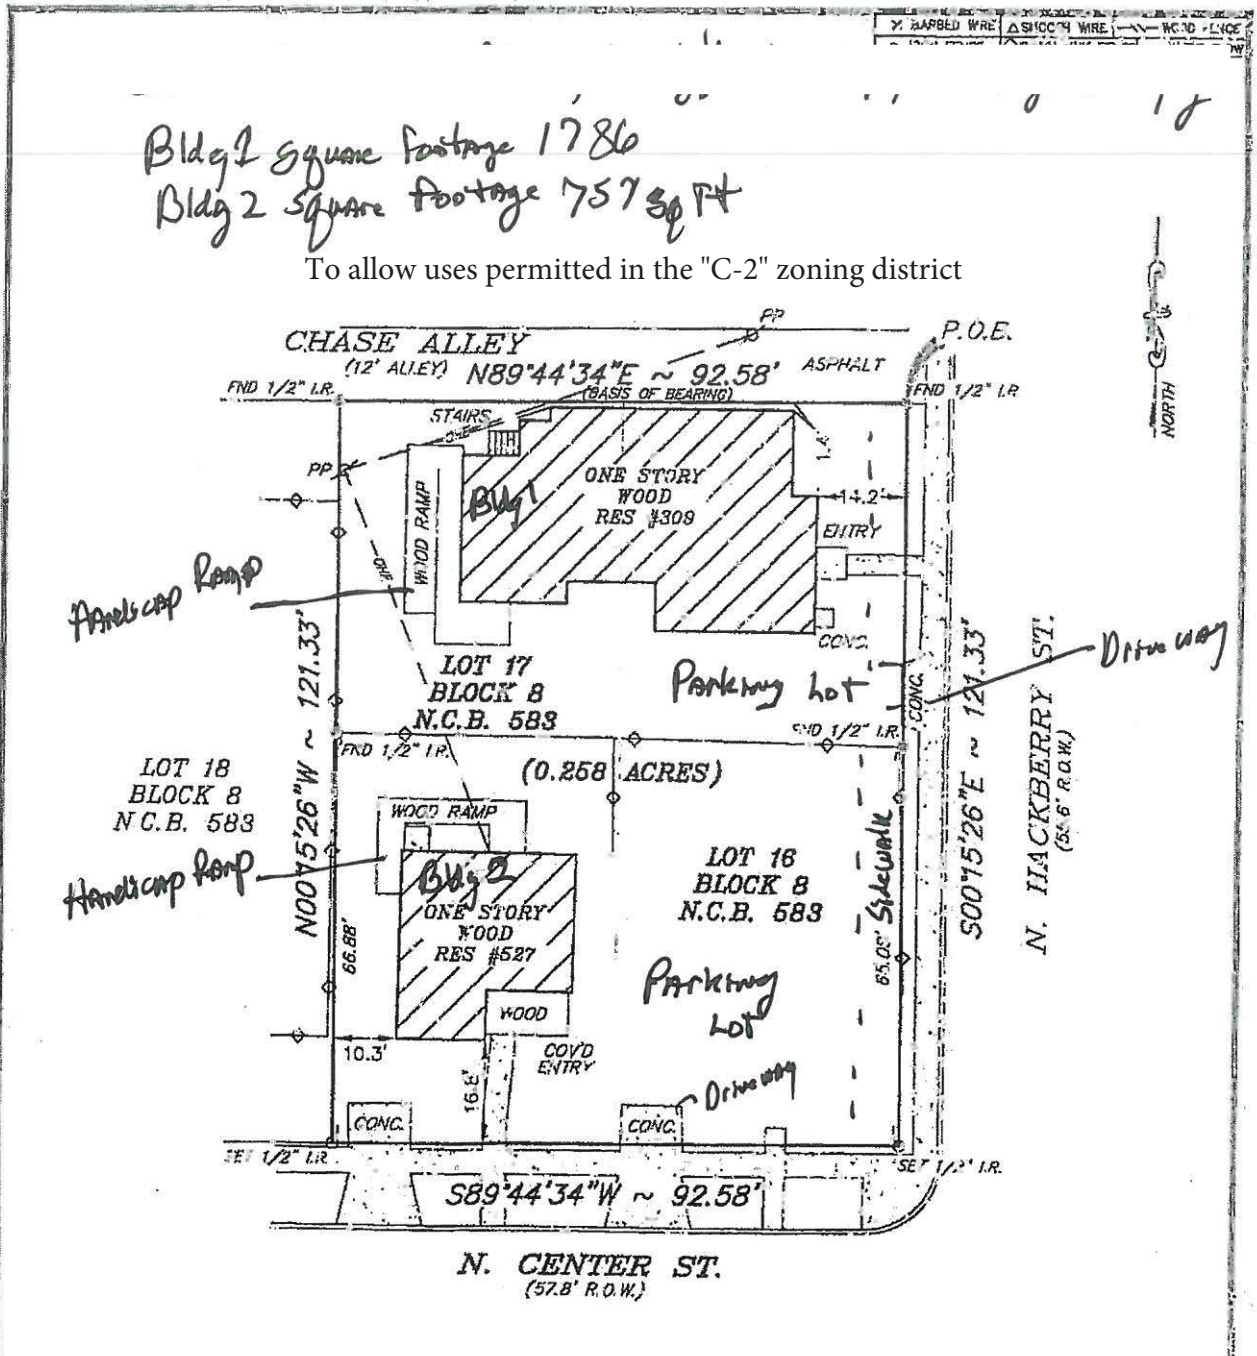 BARBED WIRE
SMOOTH WIRE
Bldg 1 square footage 1786
Bldg 2 square footage 757 sq Ft
To allow uses permitted in the "C-2" zoning district
PP
P.O.E.
CHASE ALLEY
(12' ALLEY)
N89°44'34"E ~ 92.58'
(BASIS OF BEARING)
ASPHALT
FND 1/2" I.R.
FND 1/2" I.R.
NORTH
STAIRS
OHE
PP
1.4'
Bldg 1
ONE STORY
WOOD
RES #309
14.2'
ENTRY
WOOD RAMP
OHE
Handicap Ramp
CONC.
N00°15'26"W ~ 121.33'
LOT 17
BLOCK 8
N.C.B. 583
Parking Lot
CONC.
Driveway
S00°15'26"E ~ 121.33'
N. HACKBERRY ST.
(55.6' R.O.W.)
FND 1/2" I.R.
FND 1/2" I.R.
LOT 18
BLOCK 8
N.C.B. 583
(0.258 ACRES)
WOOD RAMP
Handicap Ramp
Bldg 2
ONE STORY
WOOD
RES #527
LOT 16
BLOCK 8
N.C.B. 583
Sidewalk
65.05'
66.88'
Parking
Lot
WOOD
COV'D
ENTRY
10.3'
16.8'
Driveway
CONC.
CONC.
SET 1/2" I.R.
SET 1/2" I.R.
S89°44'34"W ~ 92.58'
N. CENTER ST.
(57.8' R.O.W.)